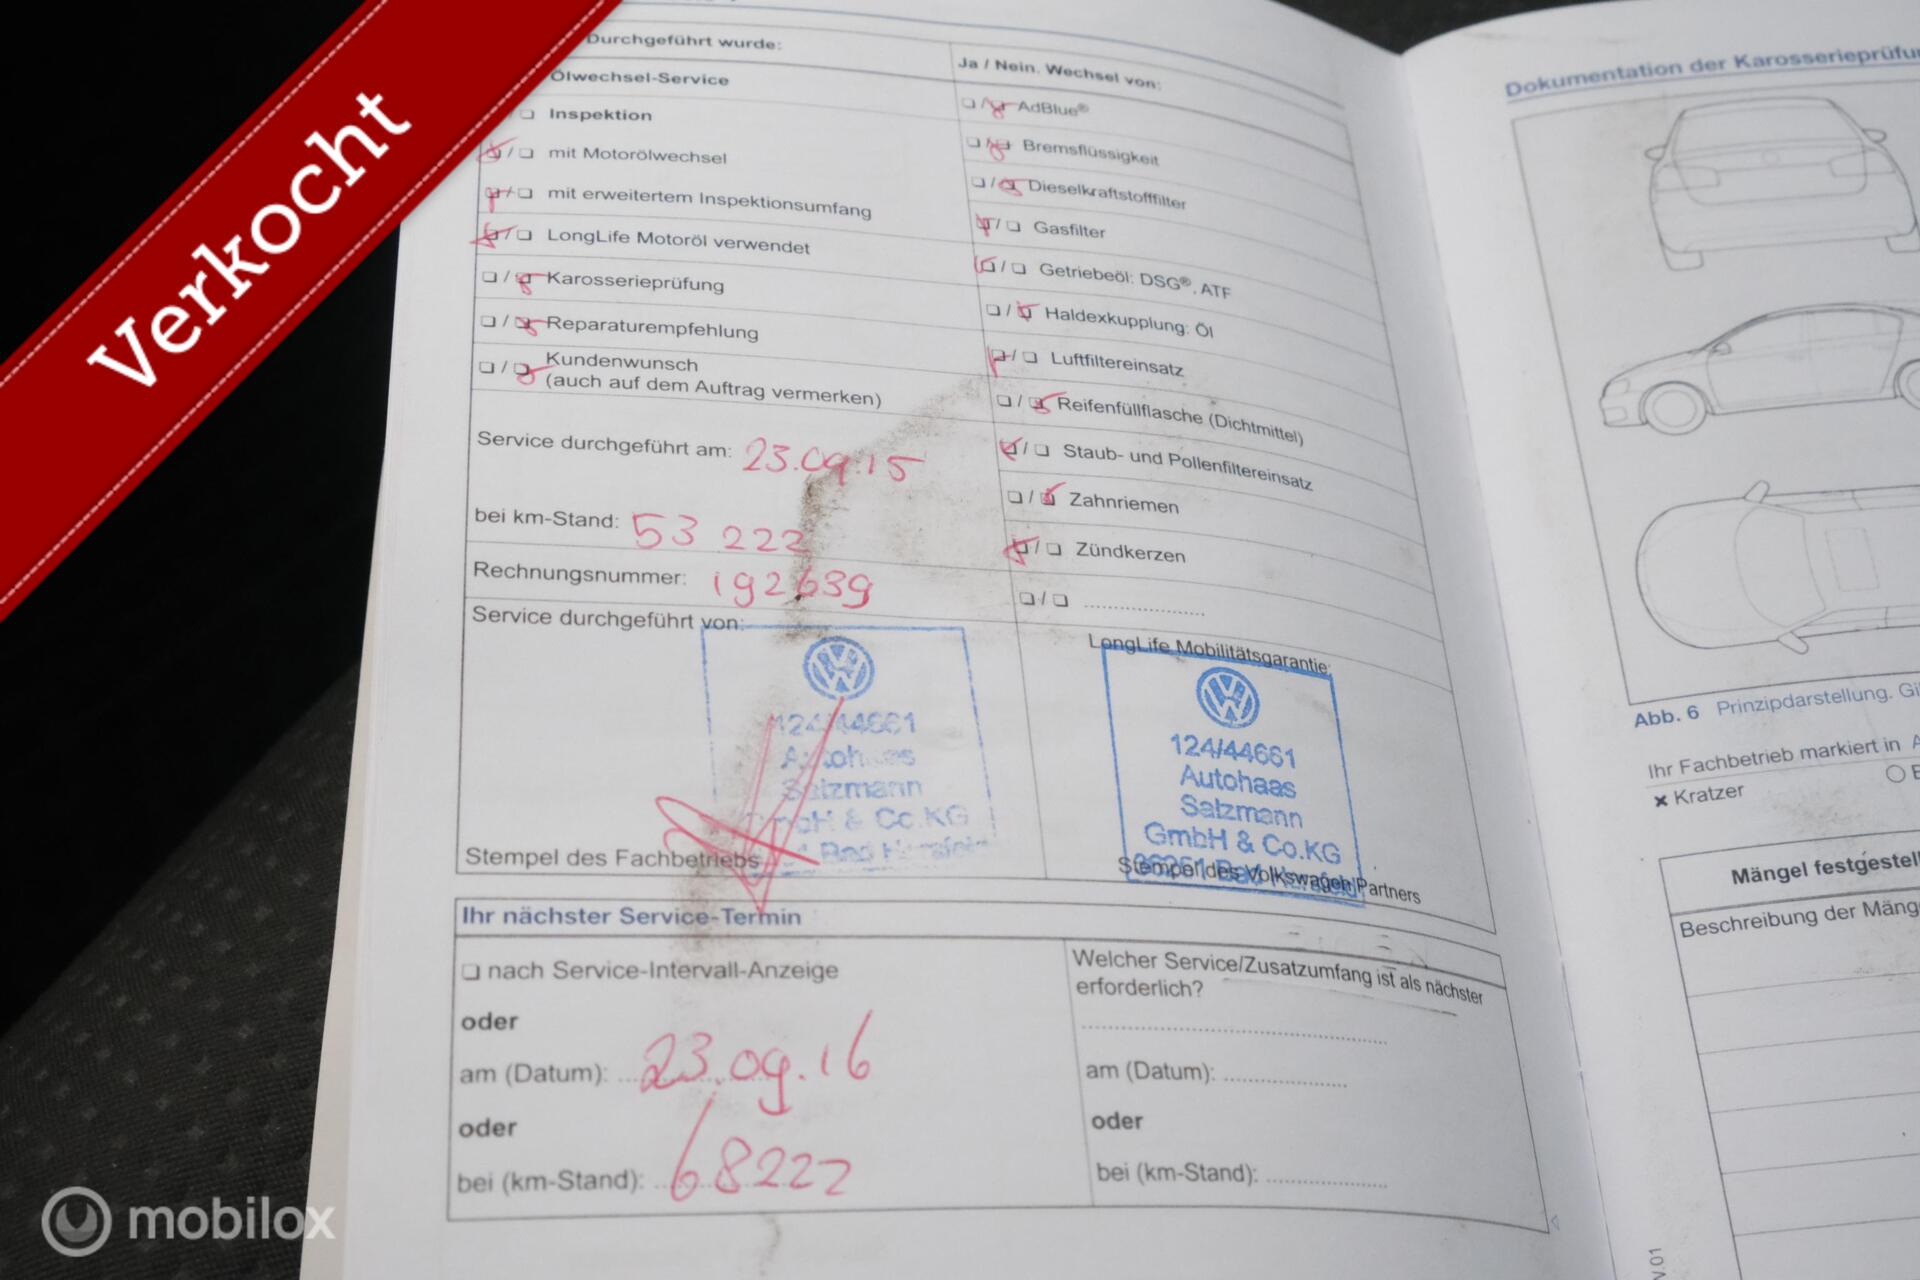 Verkocht
Durchgeführt wurde:
Ölwechsel-Service
Inspektion
mit Motorölwechsel
mit erweitertem Inspektionsumfang
LongLife Motoröl verwendet
Karosserieprüfung
Reparaturempfehlung
Kundenwunsch
(auch auf dem Auftrag vermerken)
Service durchgeführt am: 23.09.15
bei km-Stand: 53 222
Rechnungsnummer: 192639
Service durchgeführt von:
124/44661
Autohaas
Salzmann
GmbH & Co.KG
Bad Hersfeld
Stempel des Fachbetriebs
Ja / Nein. Wechsel von:
AdBlue®
Bremsflüssigkeit
Dieselkraftstofffilter
Gasfilter
Getriebeöl: DSG®, ATF
Haldexkupplung: Öl
Luftfiltereinsatz
Reifenfüllflasche (Dichtmittel)
Staub- und Pollenfiltereinsatz
Zahnriemen
Zündkerzen
LongLife Mobilitätsgarantie:
124/44661
Autohaas
Salzmann
GmbH & Co.KG
36251 Bad Hersfeld
Stempel des Volkswagen Partners
Ihr nächster Service-Termin
nach Service-Intervall-Anzeige
oder
am (Datum): 23.09.16
oder
bei (km-Stand): 68222
Welcher Service/Zusatzumfang ist als nächster
erforderlich?
am (Datum):
oder
bei (km-Stand):
Dokumentation der Karosserieprüfu
Abb. 6 Prinzipdarstellung.
Ihr Fachbetrieb markiert in
× Kratzer
Mängel festgestell
Beschreibung der Mäng
mobilox